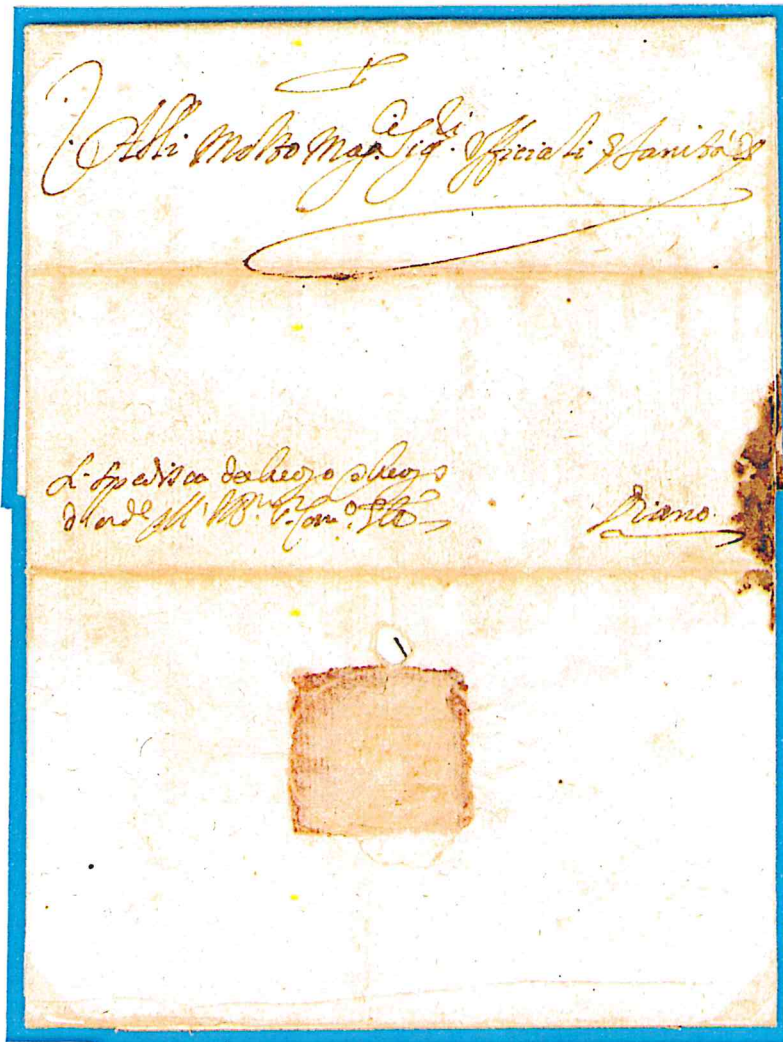 Alli Molto Mag.ci Sig.ri Officiali di Sanità di
Si spedisca da luogo a luogo
d'ord.e dell' Ill.mo
Diano